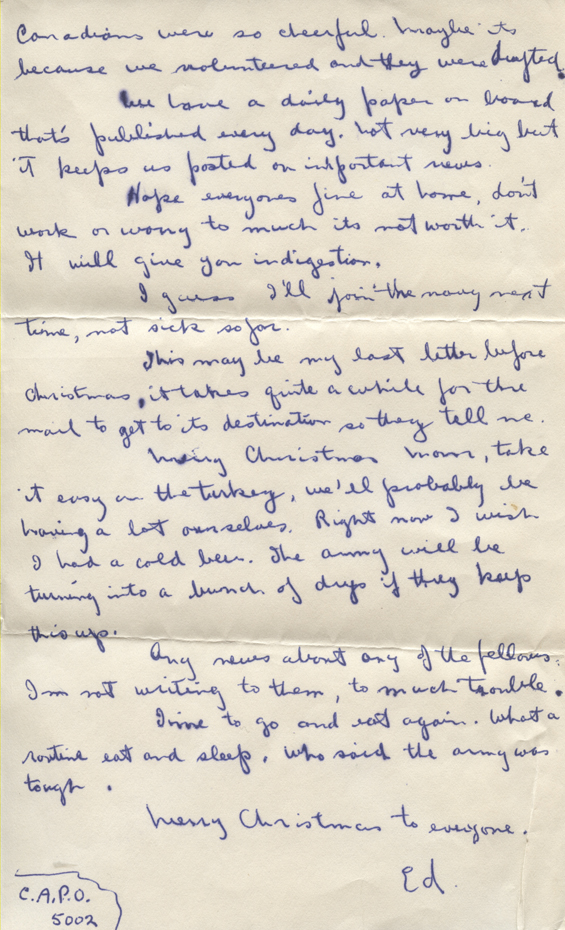 Canadians were so cheerful. Maybe its
because we volunteered and they were drafted.
We have a daily paper on board
that's published every day. Not very big but
it keeps us posted on important news.
Hope everyones fine at home, don't
work or worry to much its not worth it.
It will give you indigestion.
I guess I'll join the navy next
time, not sick so far.
This may be my last letter before
Christmas, it takes quite a while for the
mail to get to its destination so they tell me.
Merry Christmas Mom, take
it easy on the turkey, we'll probably be
having a lot ourselves. Right now I wish
I had a cold beer. The army will be
turning into a bunch of drys if they keep
this up.
Any news about any of the fellows.
I'm not writing to them, to much trouble.
Time to go and eat again. What a
routine eat and sleep. Who said the army was
tough.
Merry Christmas to everyone.
Ed.
C.A.P.O.
5002